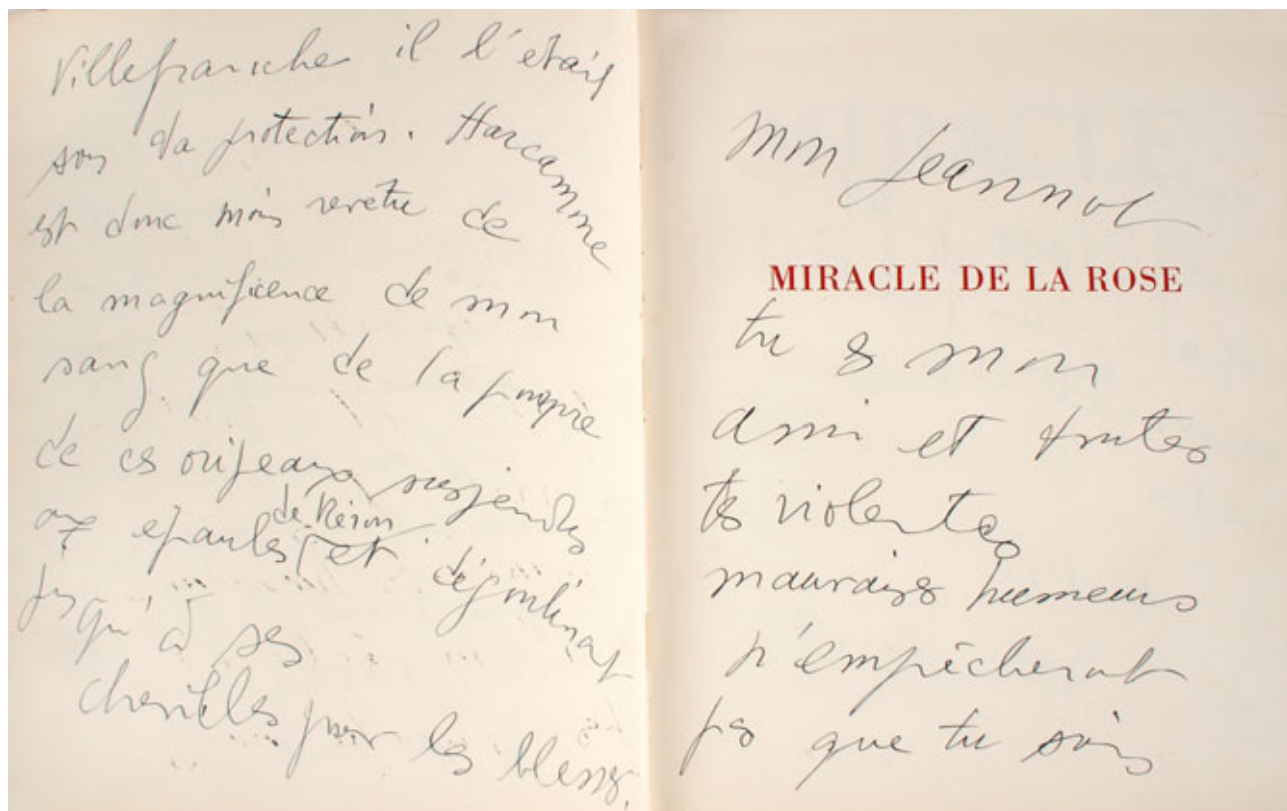 Villefranche il l'était
sous ta protection. Harcamone
est donc moins revetu de
la magnificence de mon
sang que de la pourpre
de ces oripeaux suspendus
de
aux epaules et dégoulinant
jusqu'à ses
chevilles pour les blesser.
mon Jeannot
MIRACLE DE LA ROSE
tu es mon
ami et toutes
tes violentes
mauvaises humeurs
n'empêcheront
pas que tu sois